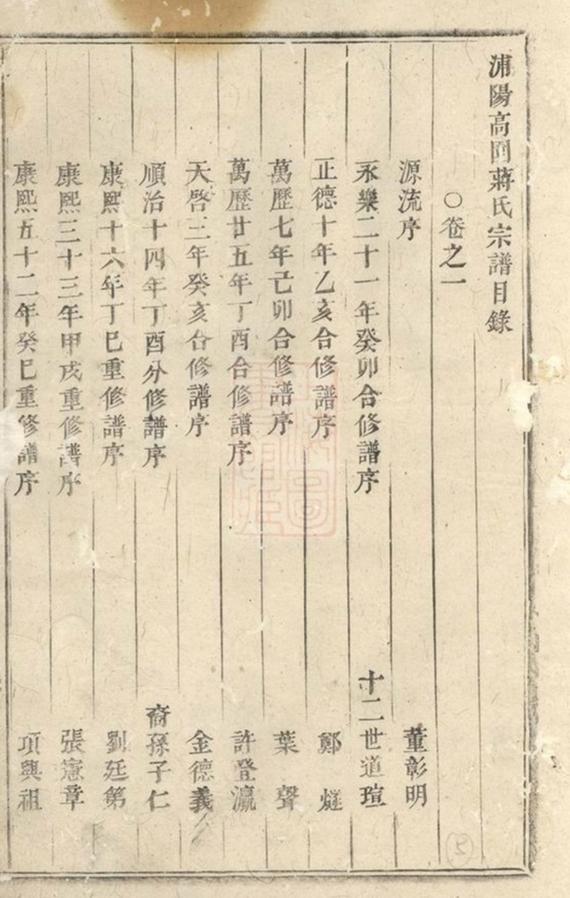 浦陽高同蔣氏宗譜目錄
○卷之一
源流序 董彰明
永樂二十一年癸卯合修譜序 十二世道瑄
正德十年乙亥合修譜序 鄭燧
萬歷七年己卯合修譜序 葉聲
萬歷廿五年丁酉合修譜序 許登瀛
天啓三年癸亥合修譜序 金德義
順治十四年丁酉分修譜序 裔孫子仁
康熙十六年丁巳重修譜序 劉廷第
康熙三十三年甲戌重修譜序 張憲章
康熙五十二年癸巳重修譜序 項興祖